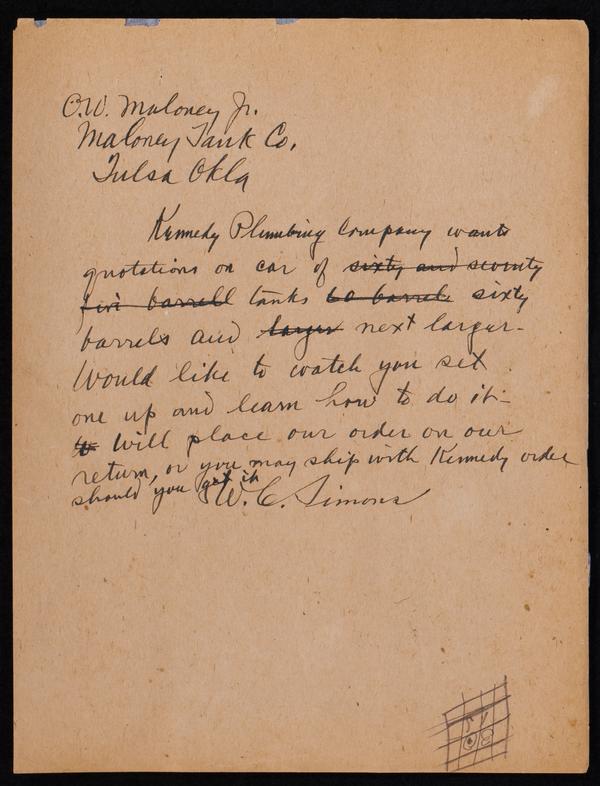 O.W. Maloney Jr.
Maloney Tank Co.
Tulsa Okla
Kennedy Plumbing Company wants
quotations on car of sixty and seventy
five barrell tanks 60 barrel sixty
barrels and larger next larger-
Would like to watch you set
one up and learn how to do it-
Will place our order on our
return, or you may ship with Kennedy order
should you get it
W. C. Simons